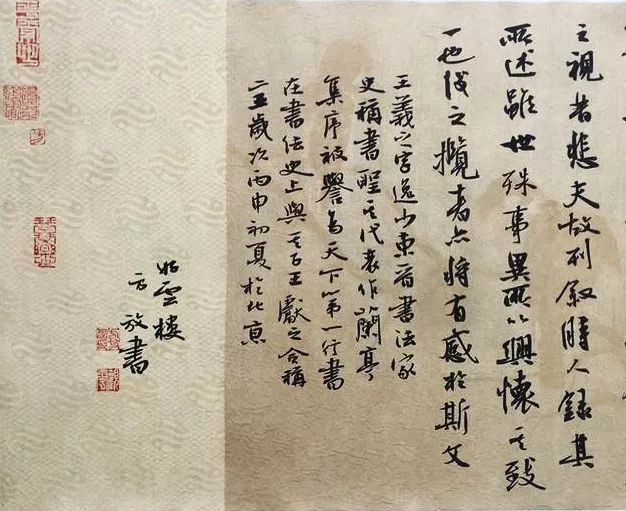 之視昔悲夫故列叙時人錄其
所述雖世殊事異所以興懷其致
一也後之攬者亦將有感於斯文
王羲之字逸少東晉書法家
史稱書聖其代表作蘭亭
集序被譽為天下第一行書
在書法史上與其子王獻之合稱
二王歲次丙申初夏於北京
如雲樓
方放書